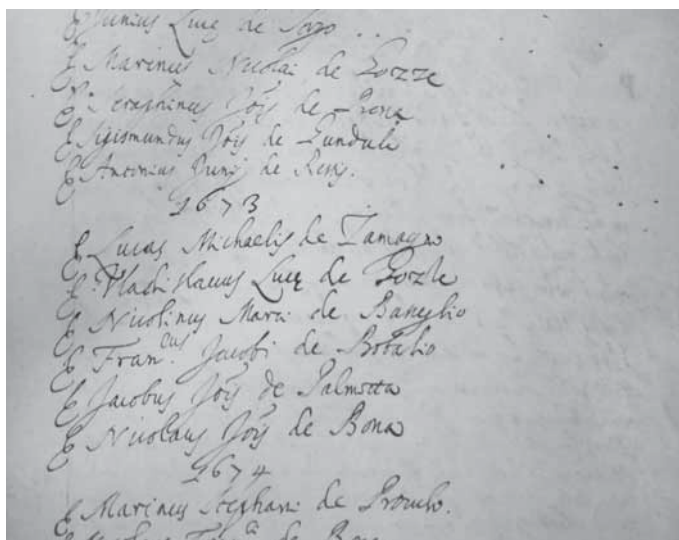 Junius Lucę de
Marinus Nicolai de Gozze
Seraphinus Jõis de Bona
Sigismundus Jõis de Gundula
Antonius Junij de
1673
Lucas Michaelis de Zamagno
Vladislaus Lucę de Gozze
Nicolinus Marci de
Fran.cus Jacobi de Bobalio
Jacobus Jõis de Palmotta
Nicolaus Jõis de Bona
1674
Marinus Stephani de
de